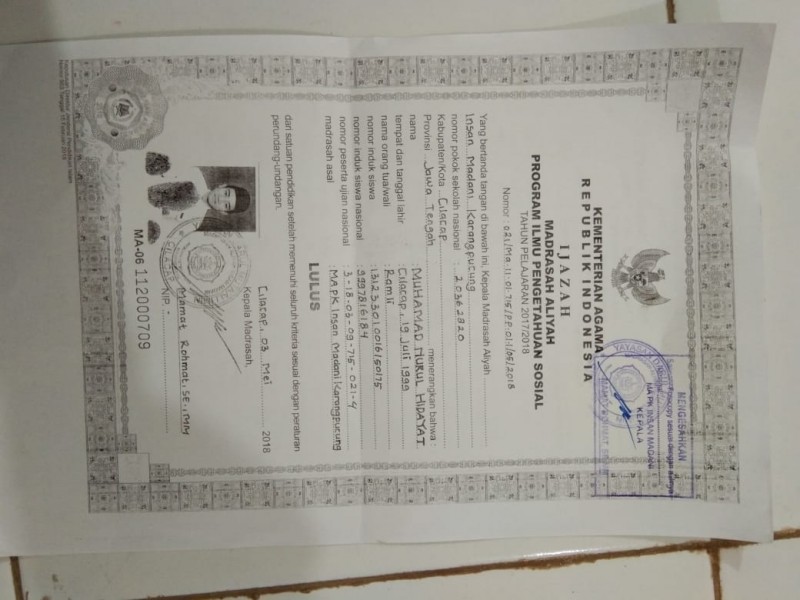 MENGESAHKAN
MAPK INSAN MADANI
KEPALA
KEMENTERIAN AGAMA
REPUBLIK INDONESIA
IJAZAH
MADRASAH ALIYAH
PROGRAM ILMU PENGETAHUAN SOSIAL
TAHUN PELAJARAN 2017/2018
Nomor :
Yang bertanda tangan di bawah ini, Kepala Madrasah Aliyah
Insan Madani Karangpucung
nomor pokok sekolah nasional : 20362920
Kabupaten/Kota Cilacap
Provinsi Jawa Tengah menerangkan bahwa:
nama : MUHAMAD NURUL HIDAYAT
tempat dan tanggal lahir : Cilacap, 19 Juli 1999
nama orang tua/wali : Ramli
nomor induk siswa :
nomor induk siswa nasional : 9997816184
nomor peserta ujian nasional : 3-18-03-09-715-021-4
madrasah asal : MAPK Insan Madani Karangpucung
LULUS
dari satuan pendidikan setelah memenuhi seluruh kriteria sesuai dengan peraturan
perundang-undangan.
Cilacap, 03 Mei 2018
Kepala Madrasah,
Mamat Rohmat, SE., MM
NIP.
MA-06 112000709